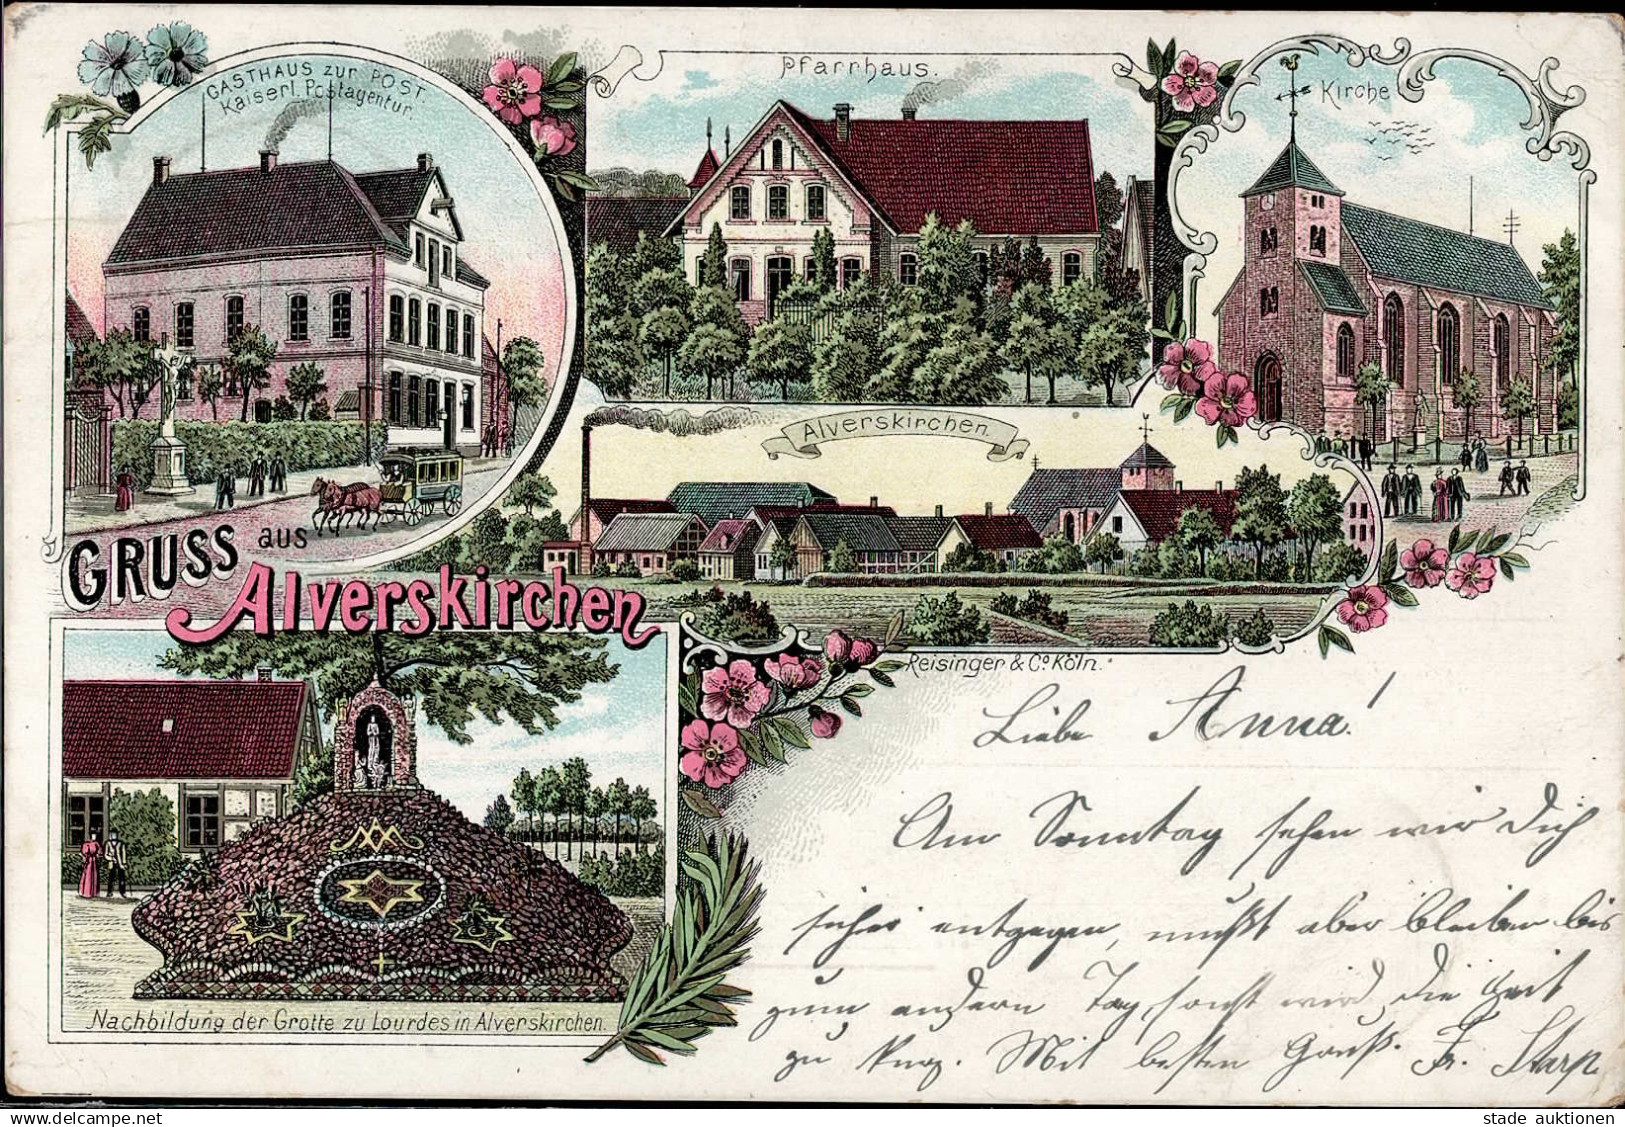 GASTHAUS zur POST.
Kaiserl. Postagentur.
Pfarrhaus.
Kirche
Alverskirchen.
GRUSS aus
Alverskirchen
Reisinger & Co. Köln.
Nachbildung der Grotte zu Lourdes in Alverskirchen.
Liebe Anna!
Am Sonntag sehen wir Dich
sicher entgegen, mußt aber bleiben bis
zum andern Tag, sonst wird die Zeit
zu kurz. Mit besten Gruß. Fr. Starp
www.delcampe.net
stade auktionen